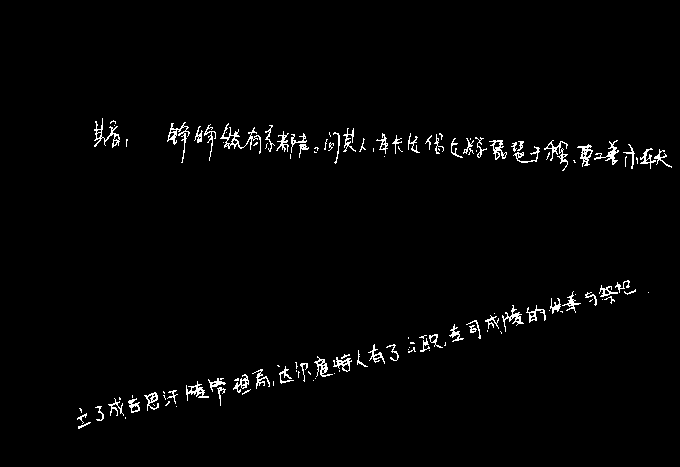 其音,铮铮然有京都声。问其人,本长安倡女,尝学琵琶于穆、曹二善才,年长
立了成吉思汗陵管理局,达尔扈特人有了公职,专司成陵的供奉与祭祀.